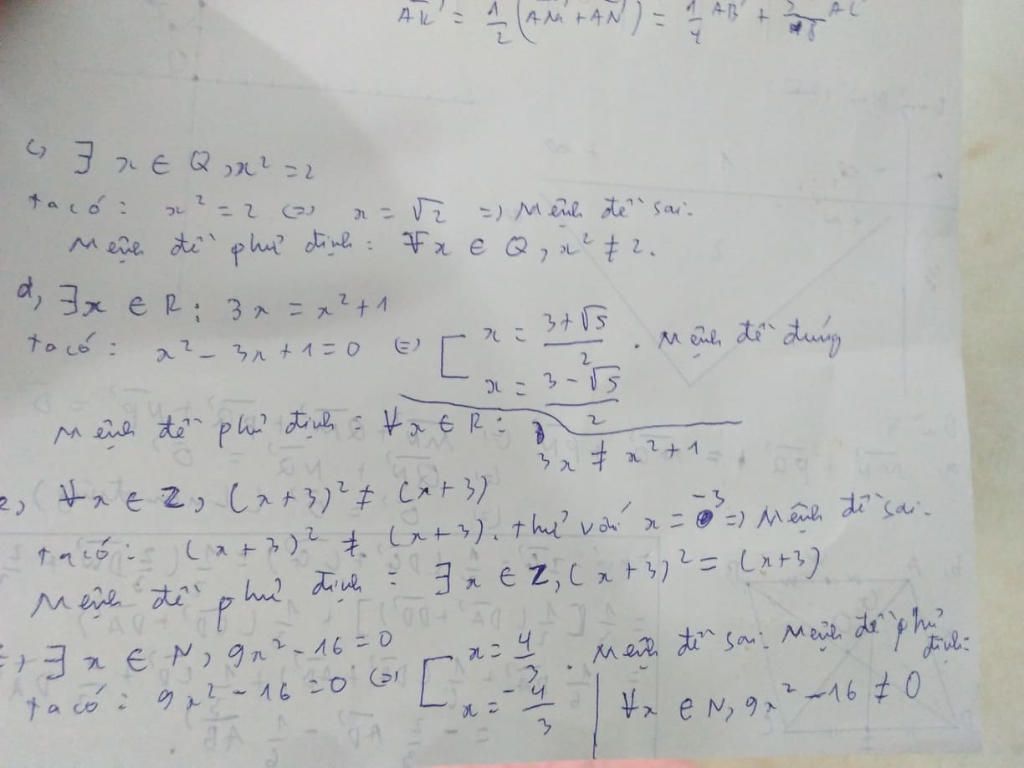 AK = 1/2 (AM + AN) = 1/4 AB + AC
c, ∃ x ∈ Q, x² = 2
ta có: x² = 2 (=) x = √2 => Mệnh đề sai.
Mệnh đề phủ định: ∀x ∈ Q, x² ≠ 2.
d, ∃x ∈ R: 3x = x² + 1
ta có: x² - 3x + 1 = 0 (=) [ x = (3+√5)/2 . Mệnh đề đúng
x = (3-√5)/2
Mệnh đề phủ định: ∀x ∈ R: 3x ≠ x² + 1
e, ∀x ∈ Z, (x+3)² ≠ (x+3)
ta có: (x+3)² ≠ (x+3). thử với x = -3 => Mệnh đề sai.
Mệnh đề phủ định: ∃x ∈ Z, (x+3)² = (x+3)
∃ x ∈ N, 9x² - 16 = 0
ta có: 9x² - 16 = 0 (=) [ x = 4/3 . Mệnh đề sai. Mệnh đề phủ định:
x = -4/3 | ∀x ∈ N, 9x² - 16 ≠ 0